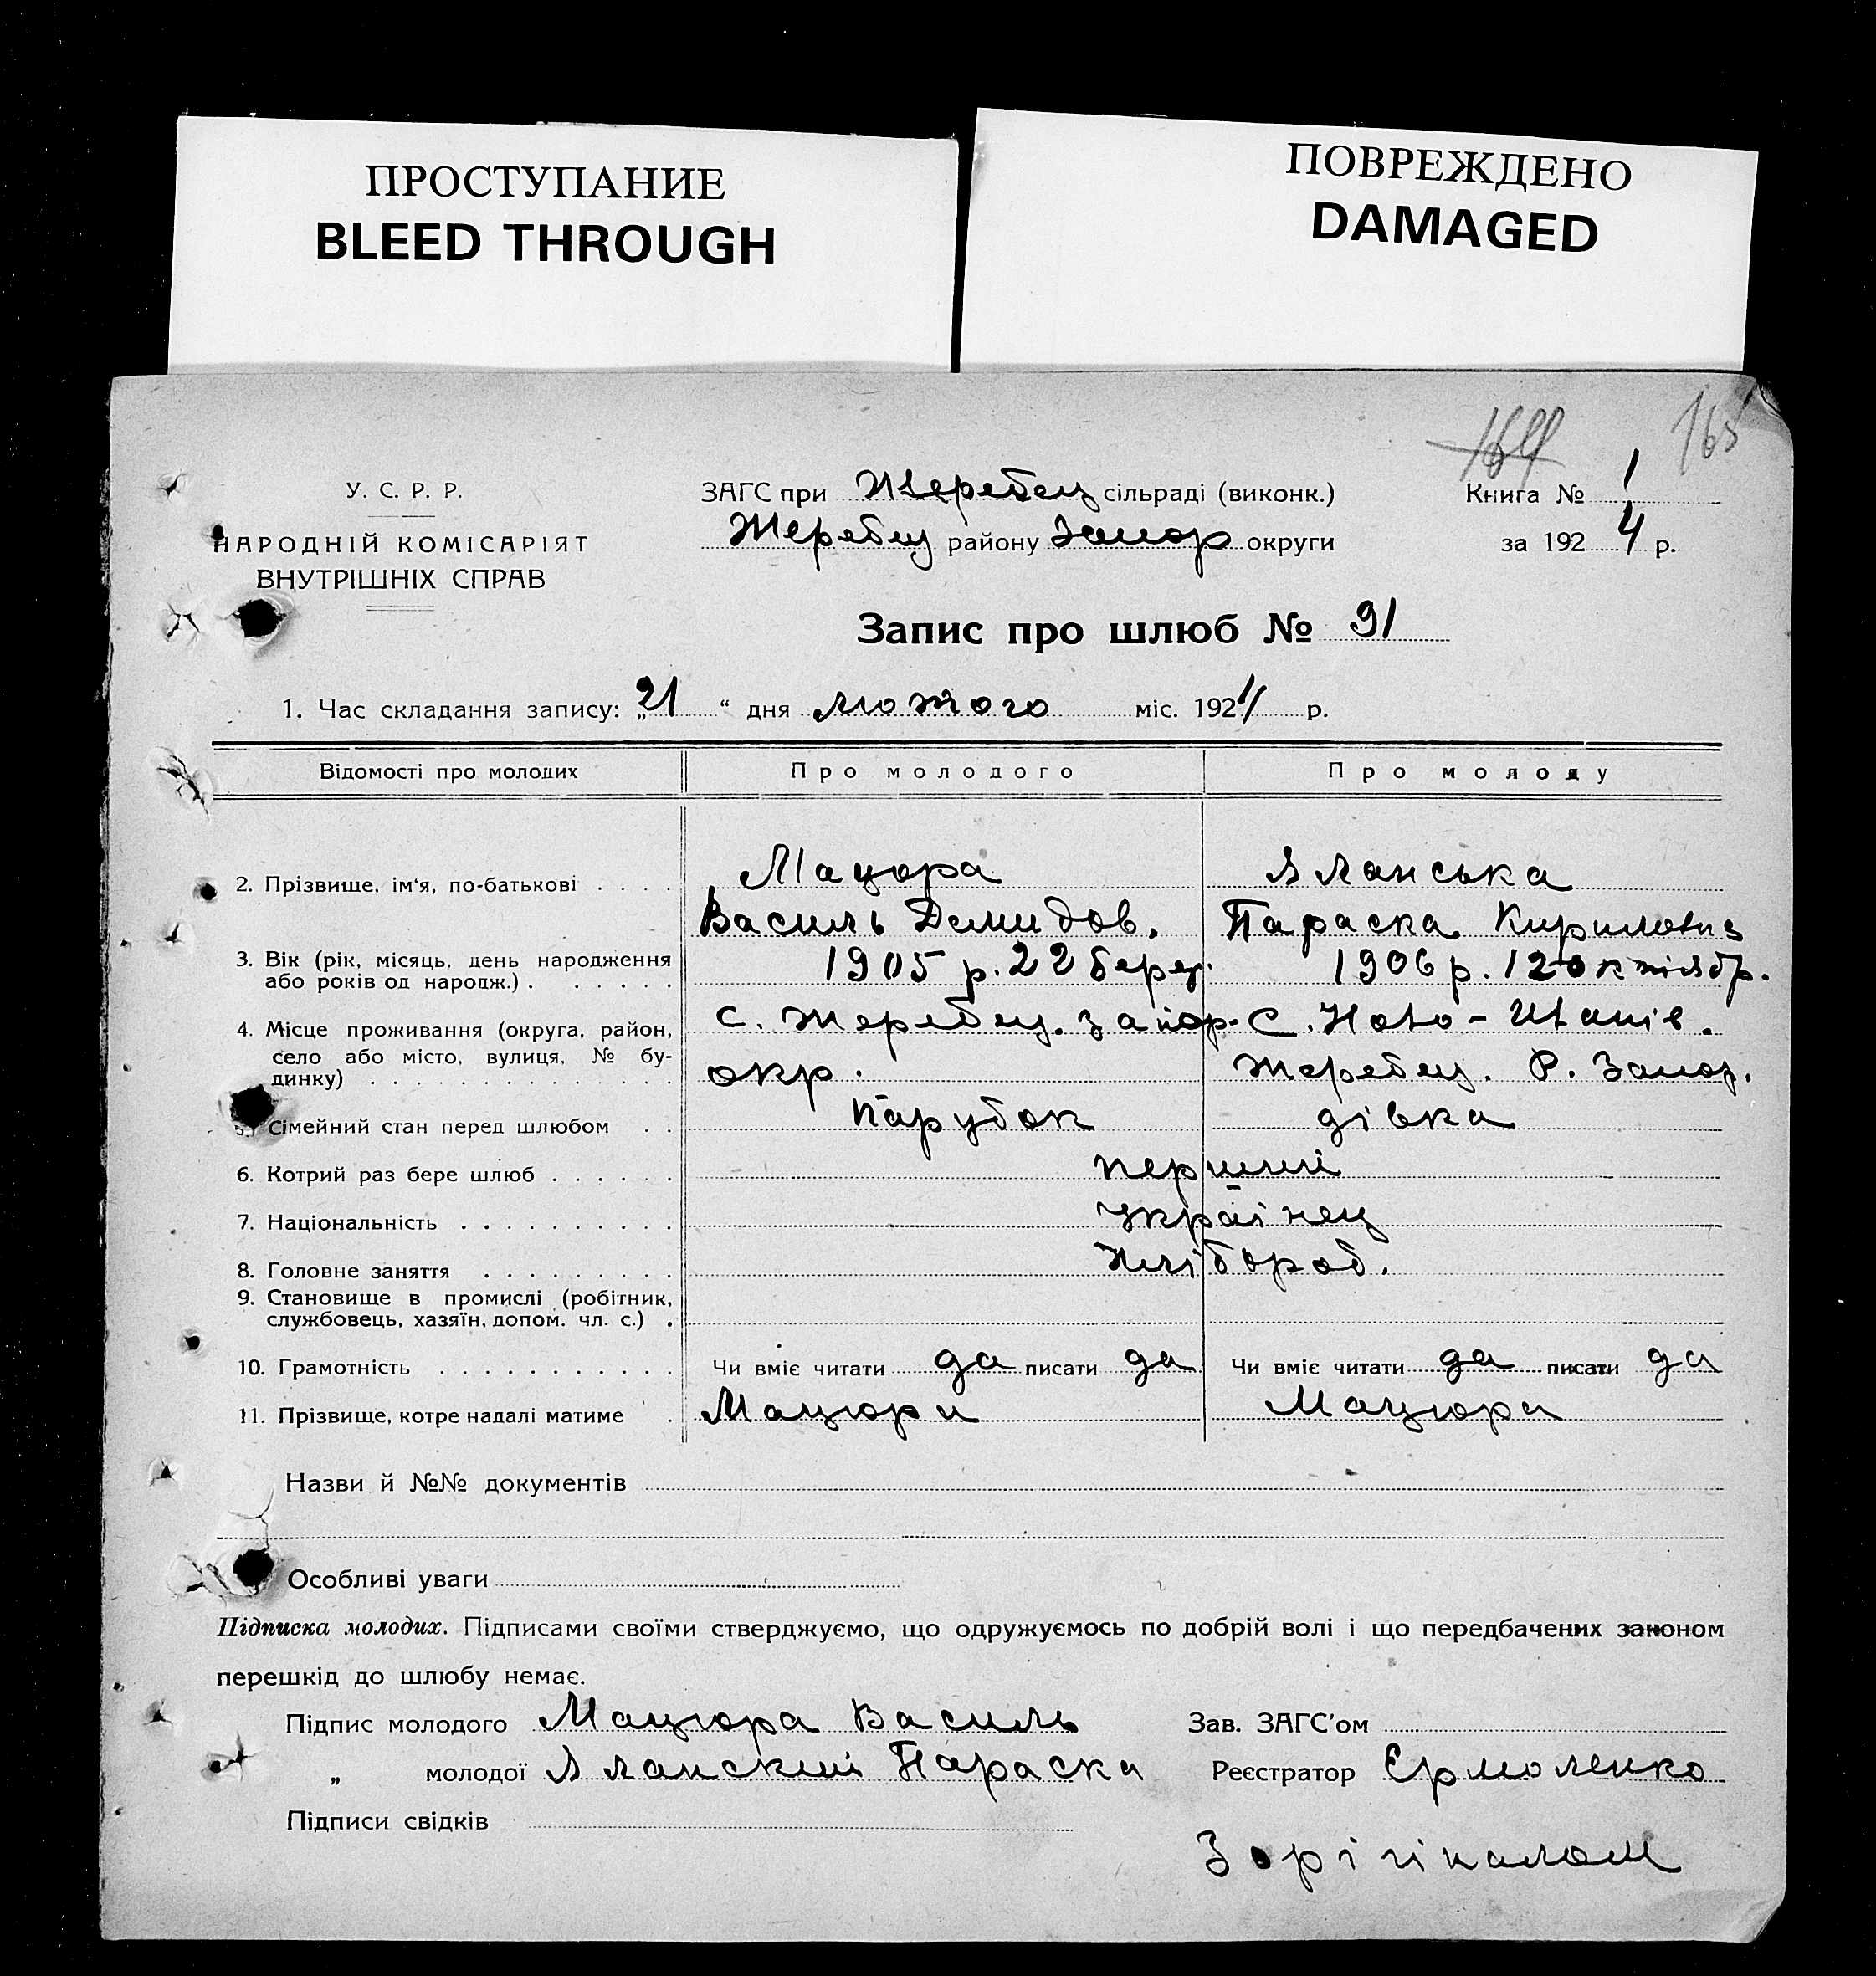 ПРОСТУПАНИЕ
BLEED THROUGH
ПОВРЕЖДЕНО
DAMAGED
164 165
У. С. Р. Р.
НАРОДНІЙ КОМІСАРІЯТ
ВНУТРІШНІХ СПРАВ
ЗАГС при Жеребец сільраді (виконк.)
Жеребец району Запор округи
Книга № 1
за 1924 р.
Запис про шлюб № 91
1. Час складання запису: „21“ дня лютого міс. 1924 р.
Відомості про молодих Про молодого Про молоду
2. Прізвище, ім'я, по-батькові . . . . Мацюра Яланська
Василь Демидов. Параска Кириловна
3. Вік (рік, місяць, день народження 1905 р. 22 берез. 1906 р. 12 октябр.
або років од народж.) . . . . . .
4. Місце проживання (округа, район, с. Жеребец. Запор. с. Ново-Іванів.
село або місто, вулиця, № бу-
динку) . . . . . . . . . . . . . . окр. Жеребец. Р. Запор.
5. Сімейний стан перед шлюбом . . парубок дівка
6. Котрий раз бере шлюб . . . . . . перший
7. Національність . . . . . . . . . . українец
8. Головне заняття . . . . . . . . . хлібороб.
9. Становище в промислі (робітник,
службовець, хазяїн, допом. чл. с.) .
10. Грамотність . . . . . . . . . . . Чи вміє читати да писати да Чи вміє читати да писати да
11. Прізвище, котре надалі матиме . Мацюра Мацюра
Назви й №№ документів
Особливі уваги
Підписка молодих. Підписами своїми стверджуємо, що одружуємось по добрій волі і що передбачених законом
перешкід до шлюбу немає.
Підпис молодого Мацюра Василь Зав. ЗАГС'ом
„ молодої Параска Реєстратор Ермоленко
Підписи свідків
З орігіналом